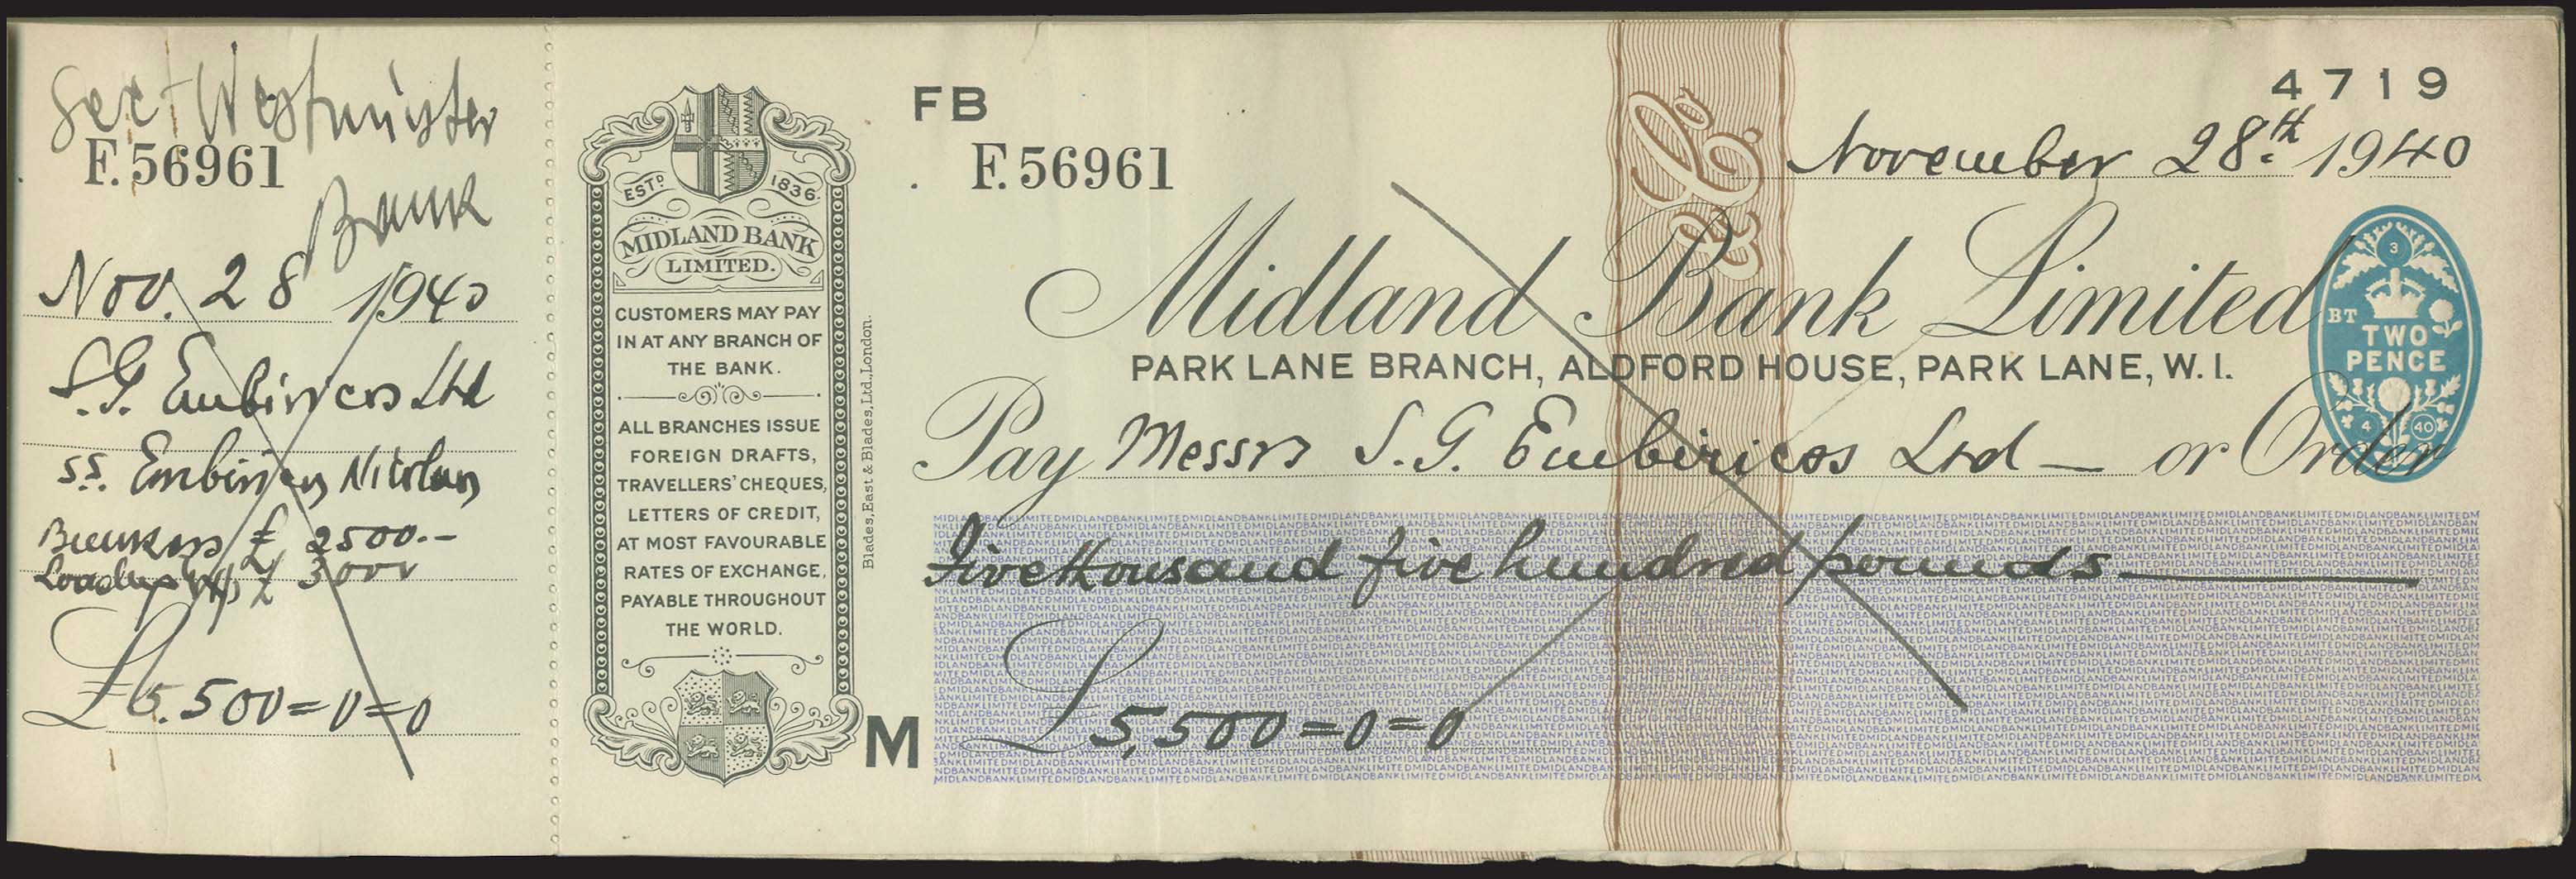 See Westminster
Bank
F.56961
Nov. 28 1940
S.G. Embiricos Ltd
s.s. Embiricos Nicolaos
Bunkers £ 2500.-
£ 3000
£5.500=0=0
ESTD 1836.
MIDLAND BANK
LIMITED.
CUSTOMERS MAY PAY
IN AT ANY BRANCH OF
THE BANK.
ALL BRANCHES ISSUE
FOREIGN DRAFTS,
TRAVELLERS' CHEQUES,
LETTERS OF CREDIT,
AT MOST FAVOURABLE
RATES OF EXCHANGE,
PAYABLE THROUGHOUT
THE WORLD.
Blades, East & Blades, Ltd., London.
M
FB
F.56961
& Co.
4719
November 28th 1940
Midland Bank Limited
PARK LANE BRANCH, ALDFORD HOUSE, PARK LANE, W.1.
BT
3
TWO
PENCE
4 40
Pay Messrs S.G. Embiricos Ltd — or Order
Five thousand five hundred pounds
£5,500=0=0